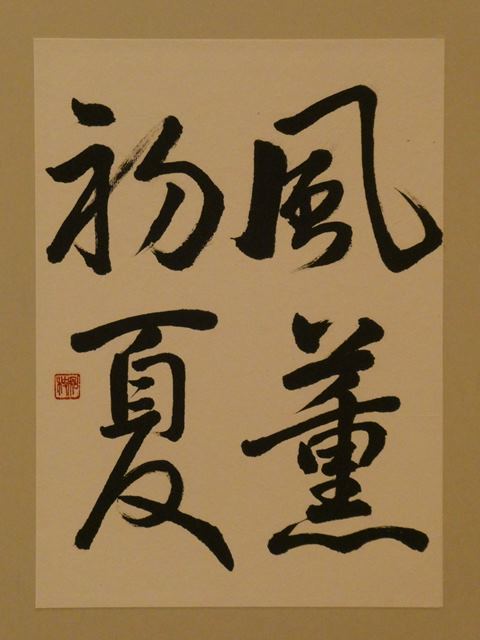 風薫
初夏